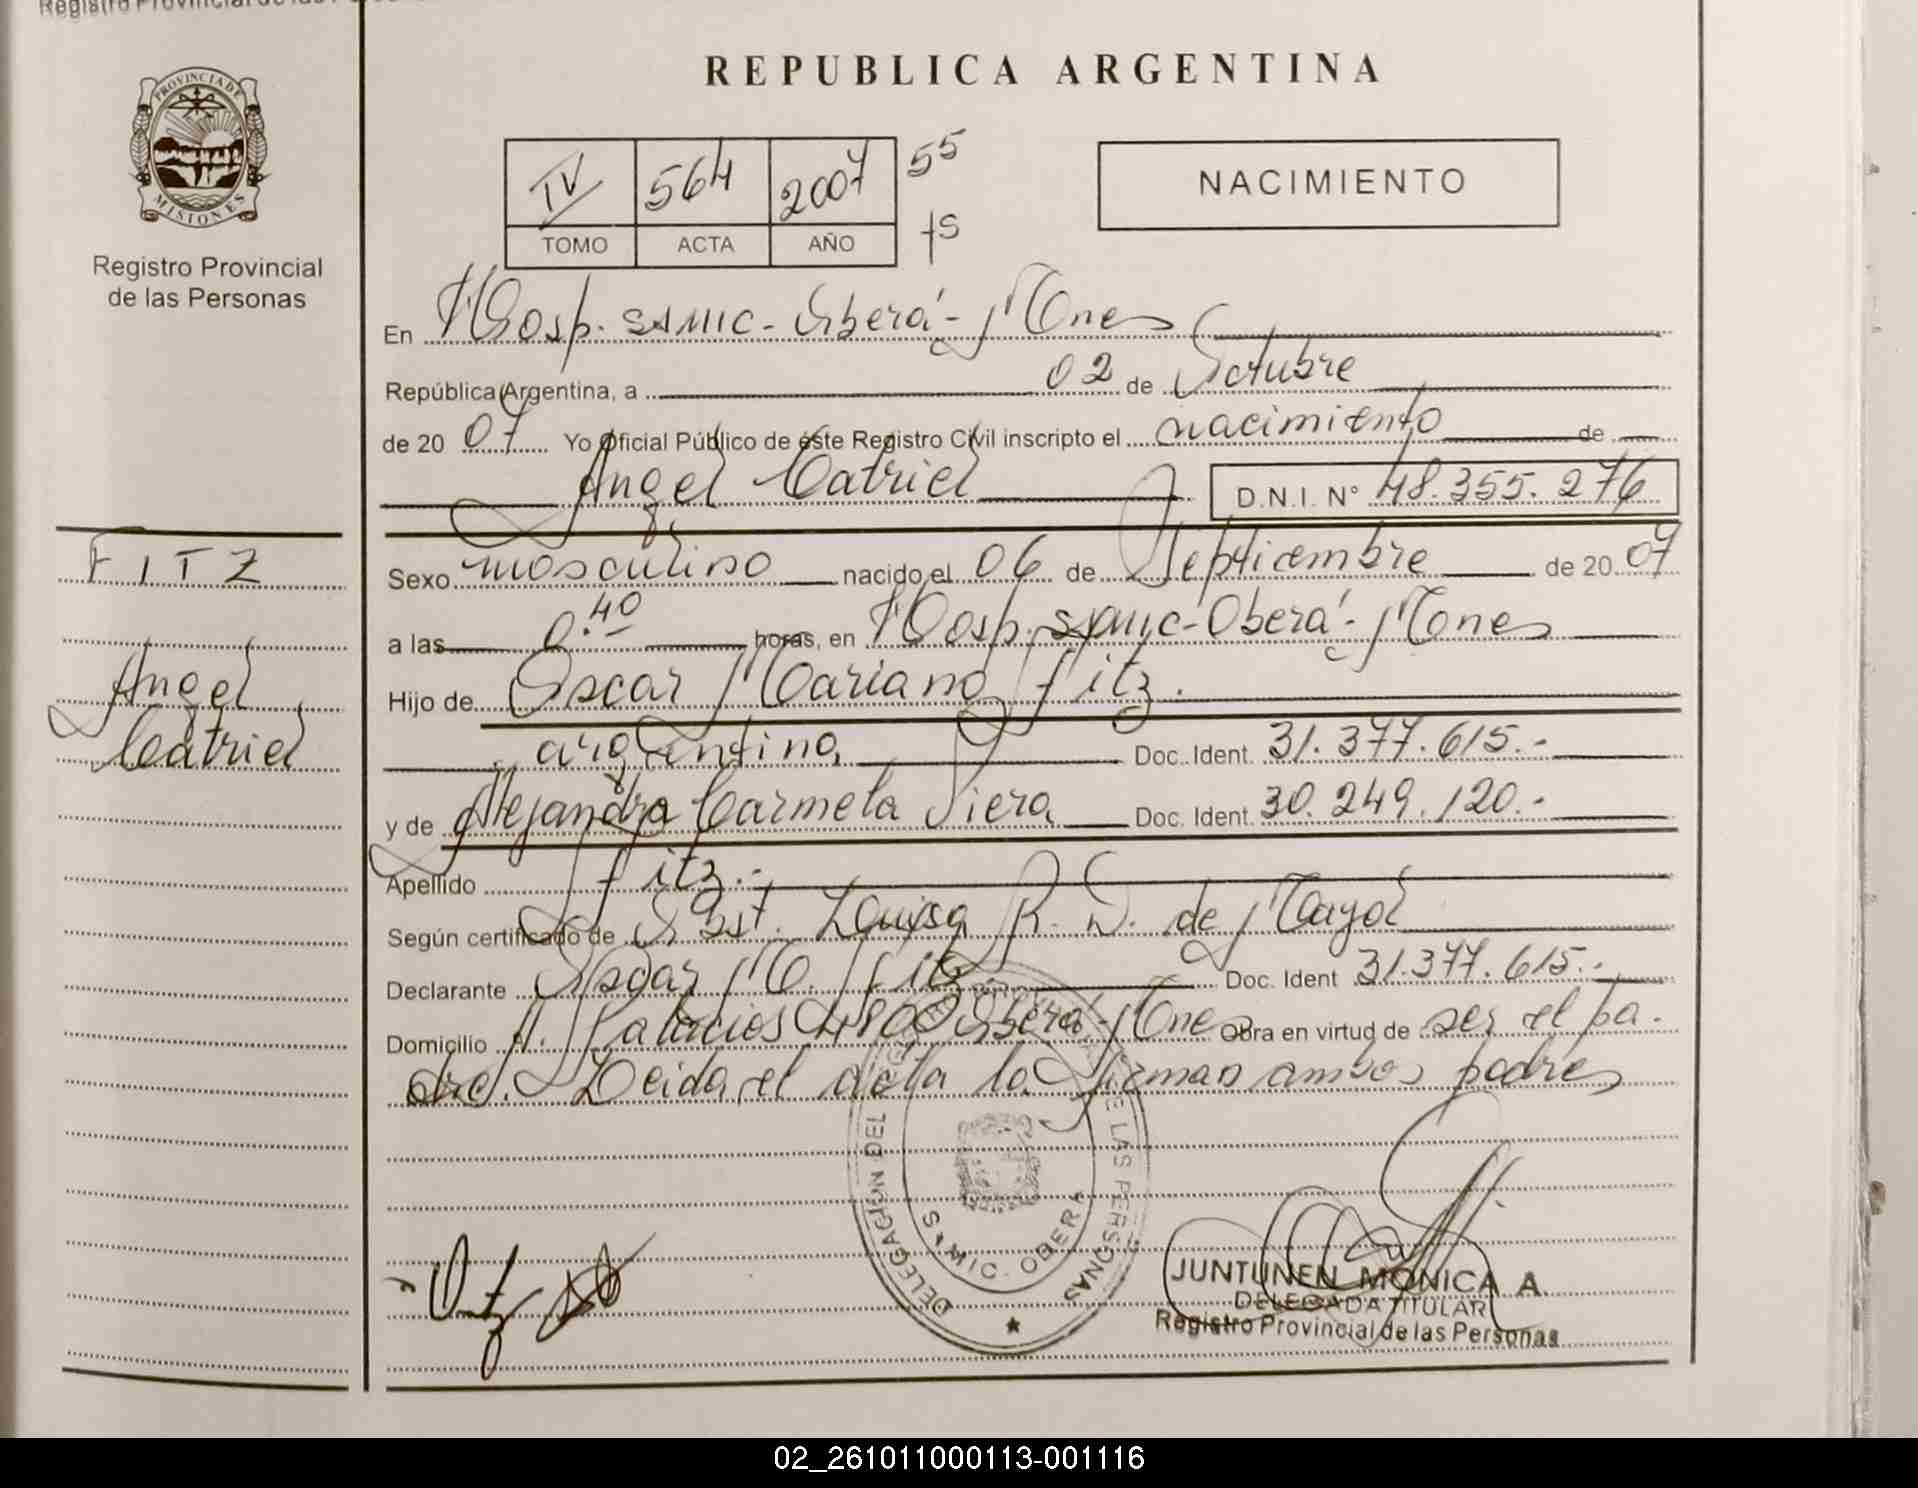 Registro Provincial de las
PROVINCIA DE
MISIONES
Registro Provincial
de las Personas
REPUBLICA ARGENTINA
IV 564 2007 55
TOMO ACTA AÑO fs
NACIMIENTO
En Hosp. SAMIC - Oberá - Mnes
República Argentina, a 02 de Octubre
de 20 07 Yo Oficial Público de éste Registro Civil inscripto el nacimiento de
Angel Catriel D.N.I. N° 48.355.276
FITZ
Angel
Catriel
Sexo masculino nacido el 06 de Septiembre de 20 07
a las 0.40 horas, en Hosp. SAMIC - Oberá - Mnes
Hijo de Oscar Mariano Fitz.
argentino, Doc. Ident. 31.377.615.-
y de Alejandra Carmela Viera, Doc. Ident. 30.249.120.-
Apellido Fitz.-
Según certificado de Obst. Luisa R. D. de Mayol
Declarante Oscar M. Fitz Doc. Ident 31.377.615.-
Domicilio A. Palacios 4800 Oberá - Mnes Obra en virtud de ser el pa-
dre. Leida el acta la firman ambos padres
DELEGACION DEL DE LAS PERSONAS
SAMIC - OBERA
JUNTUNEN MONICA A.
DELEGADA TITULAR
Registro Provincial de las Personas
02_261011000113-001116